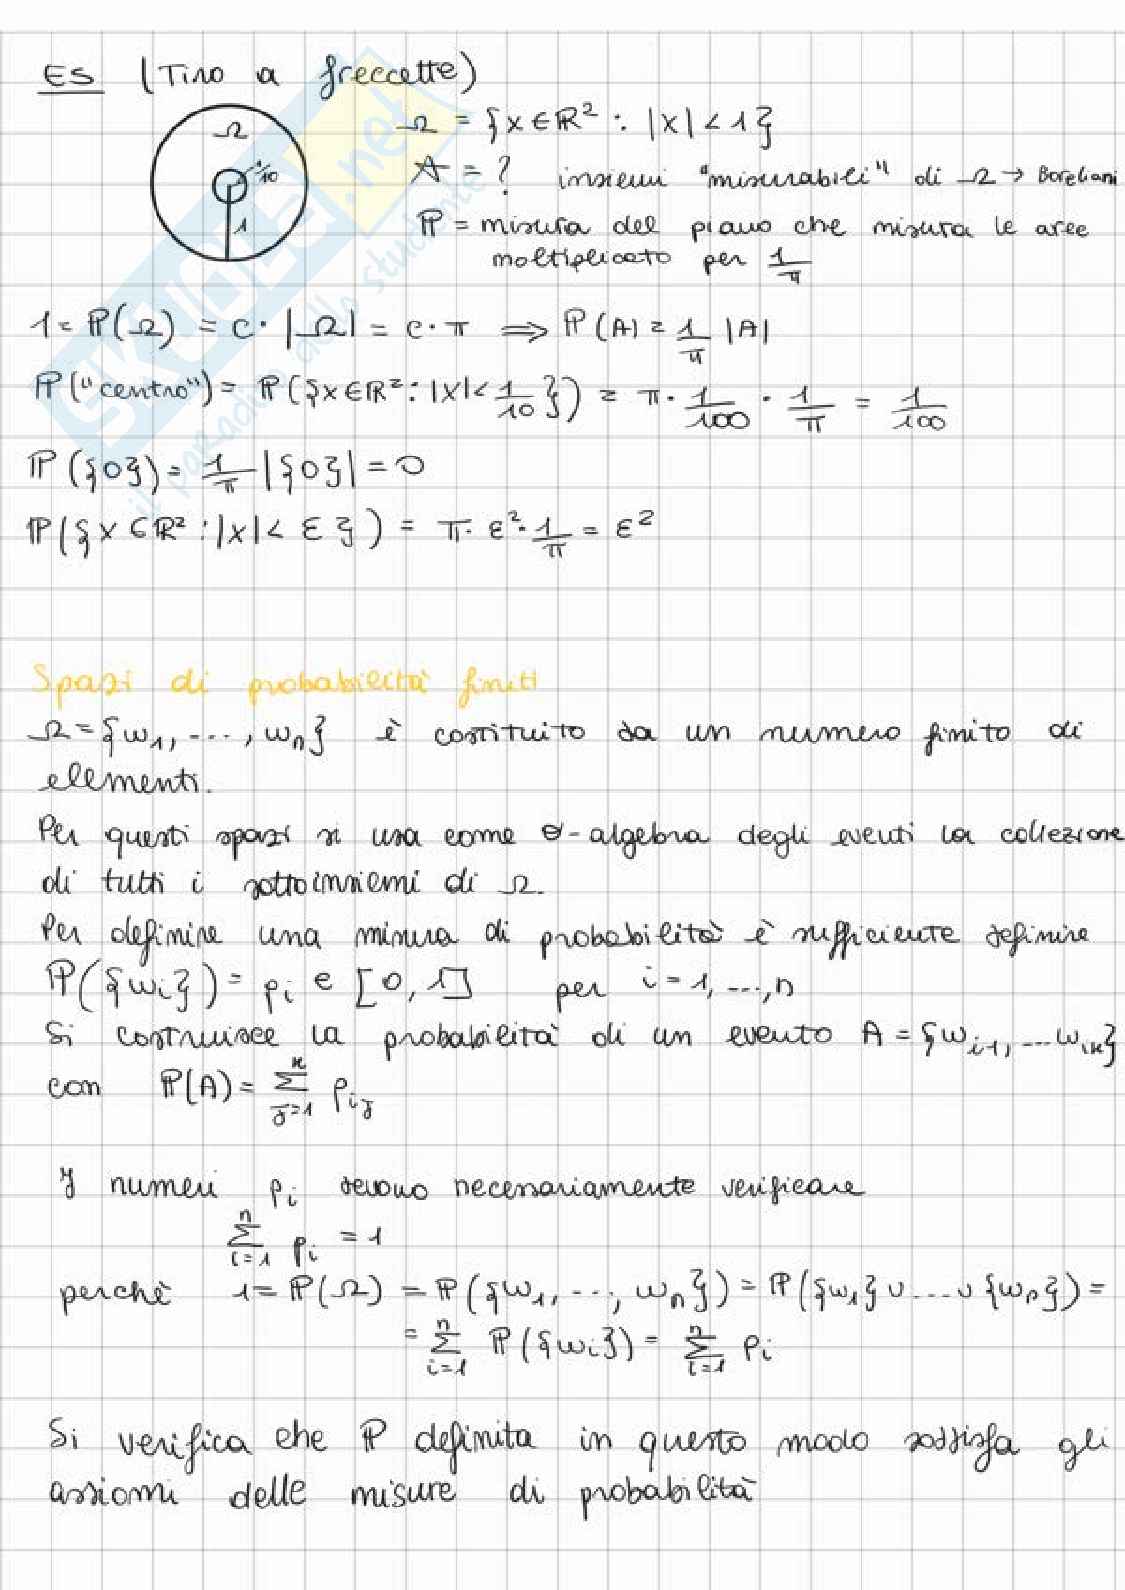 ES (Tiro a freccette)
Ω
1/10
1
Ω = {x∈ℝ² : |x|<1}
A = ? insiemi "misurabili" di Ω → Boreliani
ℙ = misura del piano che misura le aree
moltiplicato per 1/π
1 = ℙ(Ω) = c·|Ω| = c·π ⟹ ℙ(A) = 1/π |A|
ℙ("centro") = ℙ({x∈ℝ² : |x|<1/10}) = π·1/100·1/π = 1/100
ℙ({0}) = 1/π |{0}| = 0
ℙ({x∈ℝ² : |x|<ε}) = π·ε²·1/π = ε²
Spazi di probabilità finiti
Ω = {ω₁, ..., ωₙ} è costituito da un numero finito di
elementi.
Per questi spazi si usa come σ-algebra degli eventi la collezione
di tutti i sottoinsiemi di Ω.
Per definire una misura di probabilità è sufficiente definire
ℙ({ωᵢ}) = pᵢ ∈ [0, 1] per i = 1, ..., n
Si costruisce la probabilità di un evento A = {ω_i1, ... ω_ik}
con ℙ(A) = Σ_{j=1}^{k} p_{ij}
I numeri pᵢ devono necessariamente verificare
Σ_{i=1}^{n} pᵢ = 1
perchè 1 = ℙ(Ω) = ℙ({ω₁, ..., ωₙ}) = ℙ({ω₁} ∪ ... ∪ {ωₙ}) =
= Σ_{i=1}^{n} ℙ({ωᵢ}) = Σ_{i=1}^{n} pᵢ
Si verifica che ℙ definita in questo modo soddisfa gli
assiomi delle misure di probabilità
SKUOLA.net
il paradiso dello studente